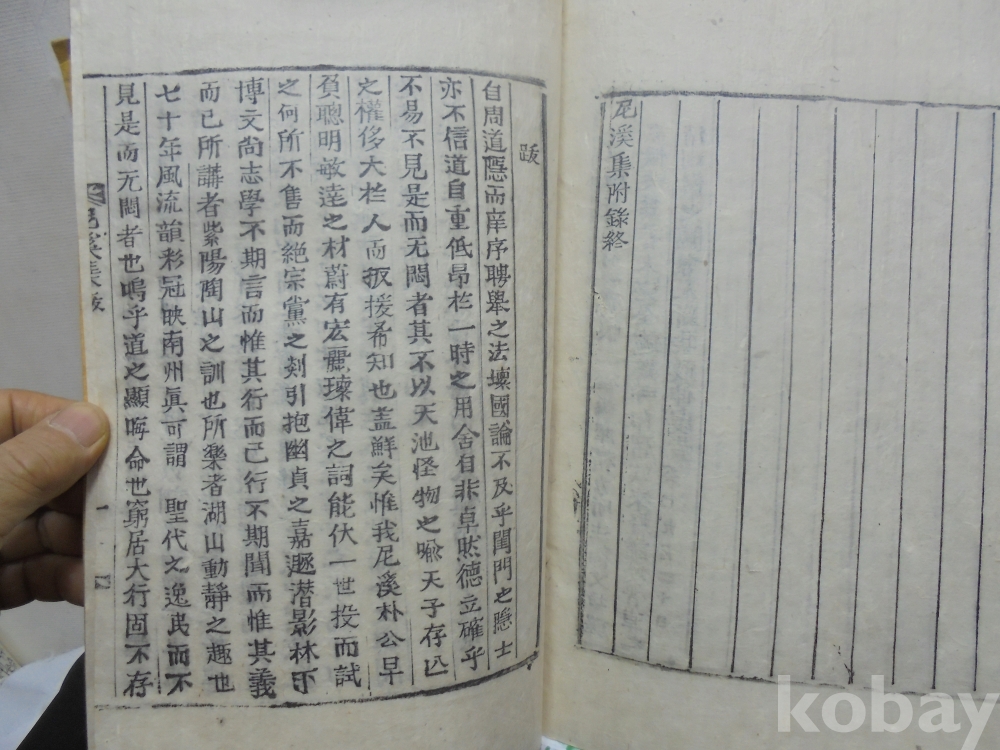 尼溪集附錄終
跋
自周道隱而庠序聘舉之法壞國論不及乎閨門之隱士
亦不信道自重低昂於一時之用舍自非卓然德立確乎
不易不見是而无悶者其不以天池怪物之喩天子存亡
之權侈大於人而扳援希知也盖鮮矣惟我尼溪朴公早
負聰明敏逹之材蔚有宏麗瓌偉之詞能伏一世投而試
之何所不售而絶宗黨之剡引抱幽貞之嘉遯潜影林下
博文尚志學不期言而惟其行而已行不期聞而惟其義
而已所講者紫陽陶山之訓也所樂者湖山動靜之趣也
七十年風流韻彩冠映南州眞可謂 聖代之逸民而不
見是而无悶者也嗚乎道之顯晦命也窮居大行固不存
尼溪集跋
一
kobay